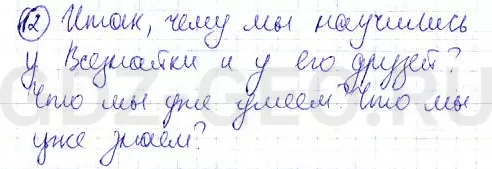 12) Итак, чему мы научились
у Всезнайки и у его друзей?
Что мы уже умеем? Что мы
уже знаем?